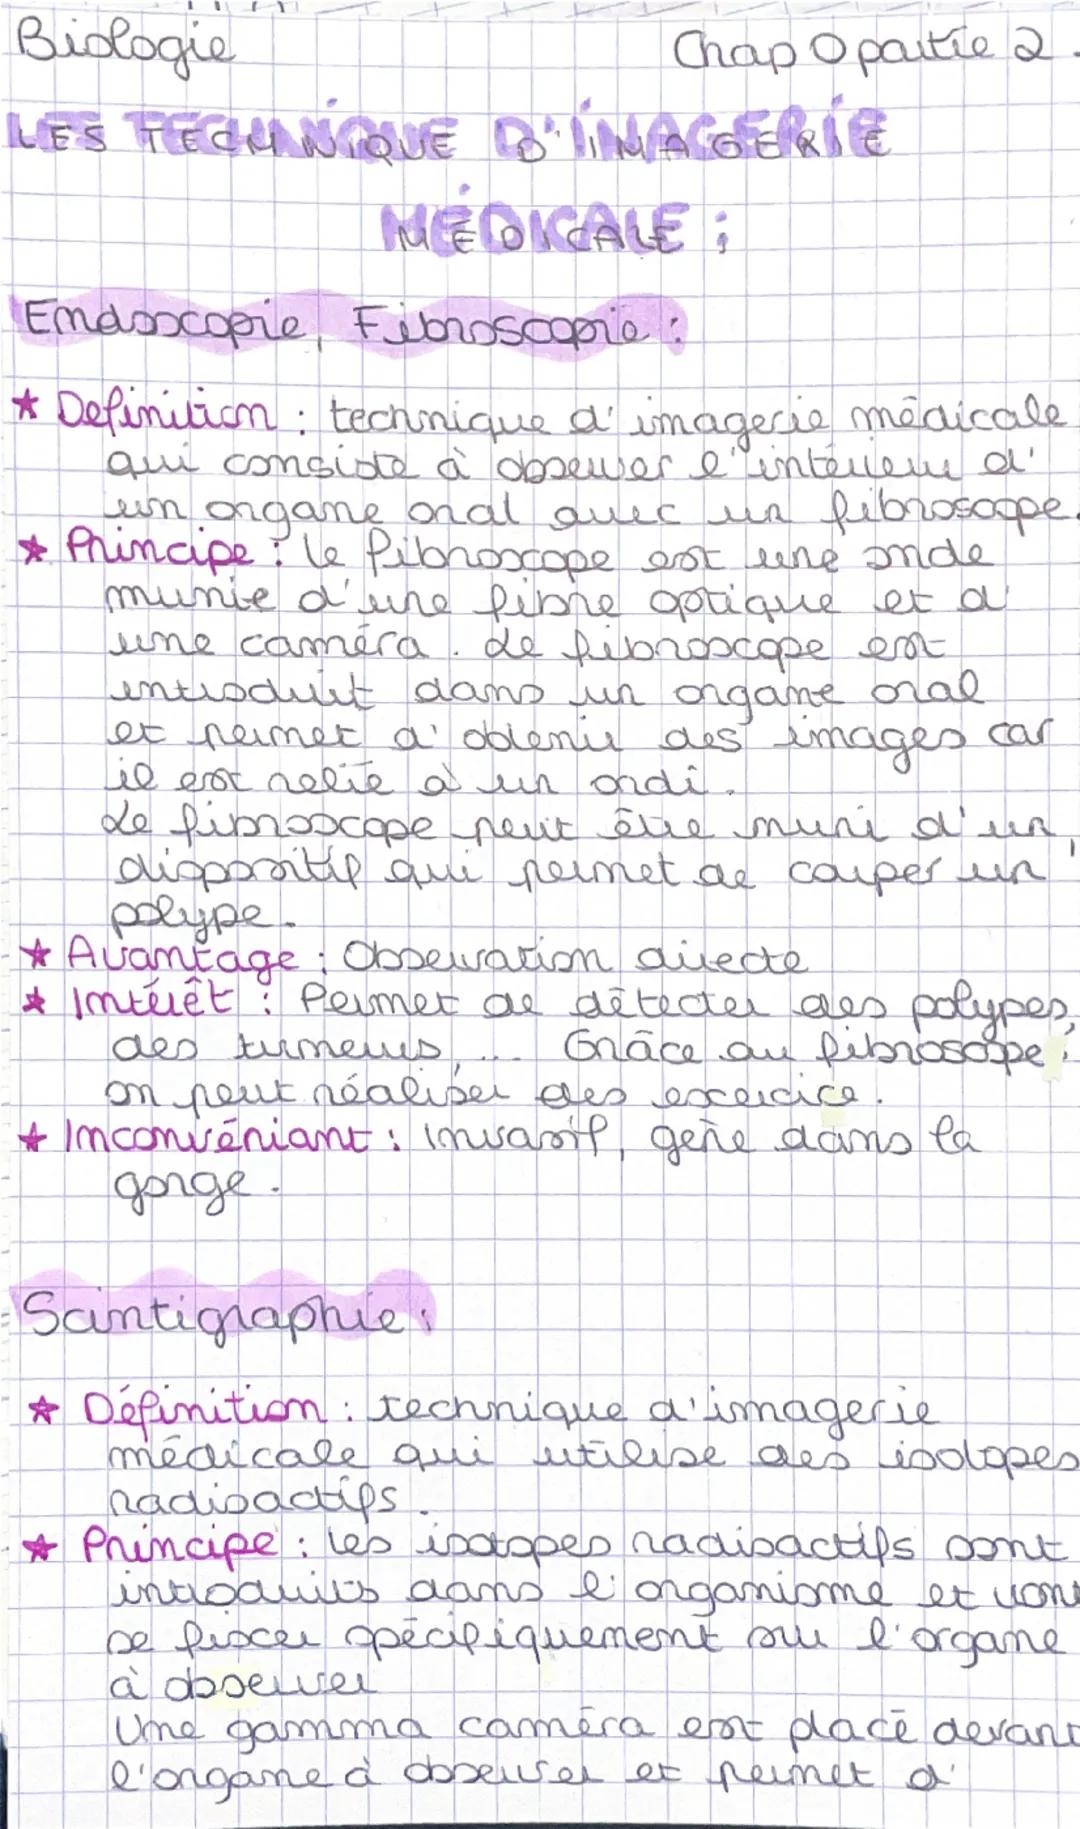 Biologie Chap 0 partie 2.
LES TECHNIQUE D'IMAGERIE
MÉDICALE :
Endoscopie, Fibroscopie :
★ Definition : technique d'imagerie médicale
qui consiste à observer l'intérieur d'
un organe oral avec un fibroscope.
★ Principe : le fibroscope est une onde
munie d'une fibre optique et d'
une caméra. Le fibroscope est
introduit dans un organe oral
et permet d'obtenir des images car
il est relié à un ordi.
Le fibroscope peut être muni d'un
dispositif qui permet de couper un
polype.
★ Avantage : Observation directe
★ Intérêt : Permet de détecter des polypes,
des tumeurs, ... Grâce au fibroscope,
on peut réaliser des excercice.
★ Inconvéniant : invasif, gène dans la
gorge.
Scintigraphie :
★ Définition : technique d'imagerie
médicale qui utilise des isotopes
radioactifs.
★ Principe : les isotopes radioactifs sont
introduits dans l'organisme et vont
se fixer spécifiquement sur l'organe
à observer
Une gamma caméra est placé devant
l'organe à observer et permet d'